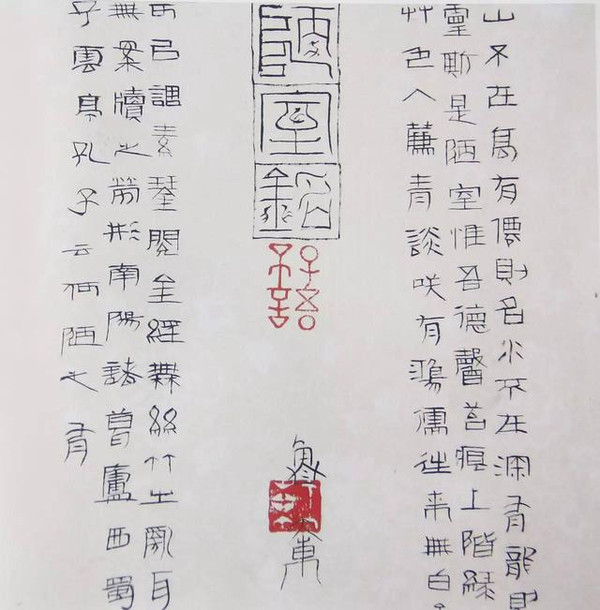 山不在高有僊則名水不在深有龍則
靈斯是陋室惟吾德馨苔痕上階綠
艸色入簾青談咲有鴻儒往來無白
陋室銘
魯大東
可㠯調素琴閱金經無絲竹之亂耳
無案牘之勞形南陽諸葛廬西蜀
子雲亭孔子云何陋之有